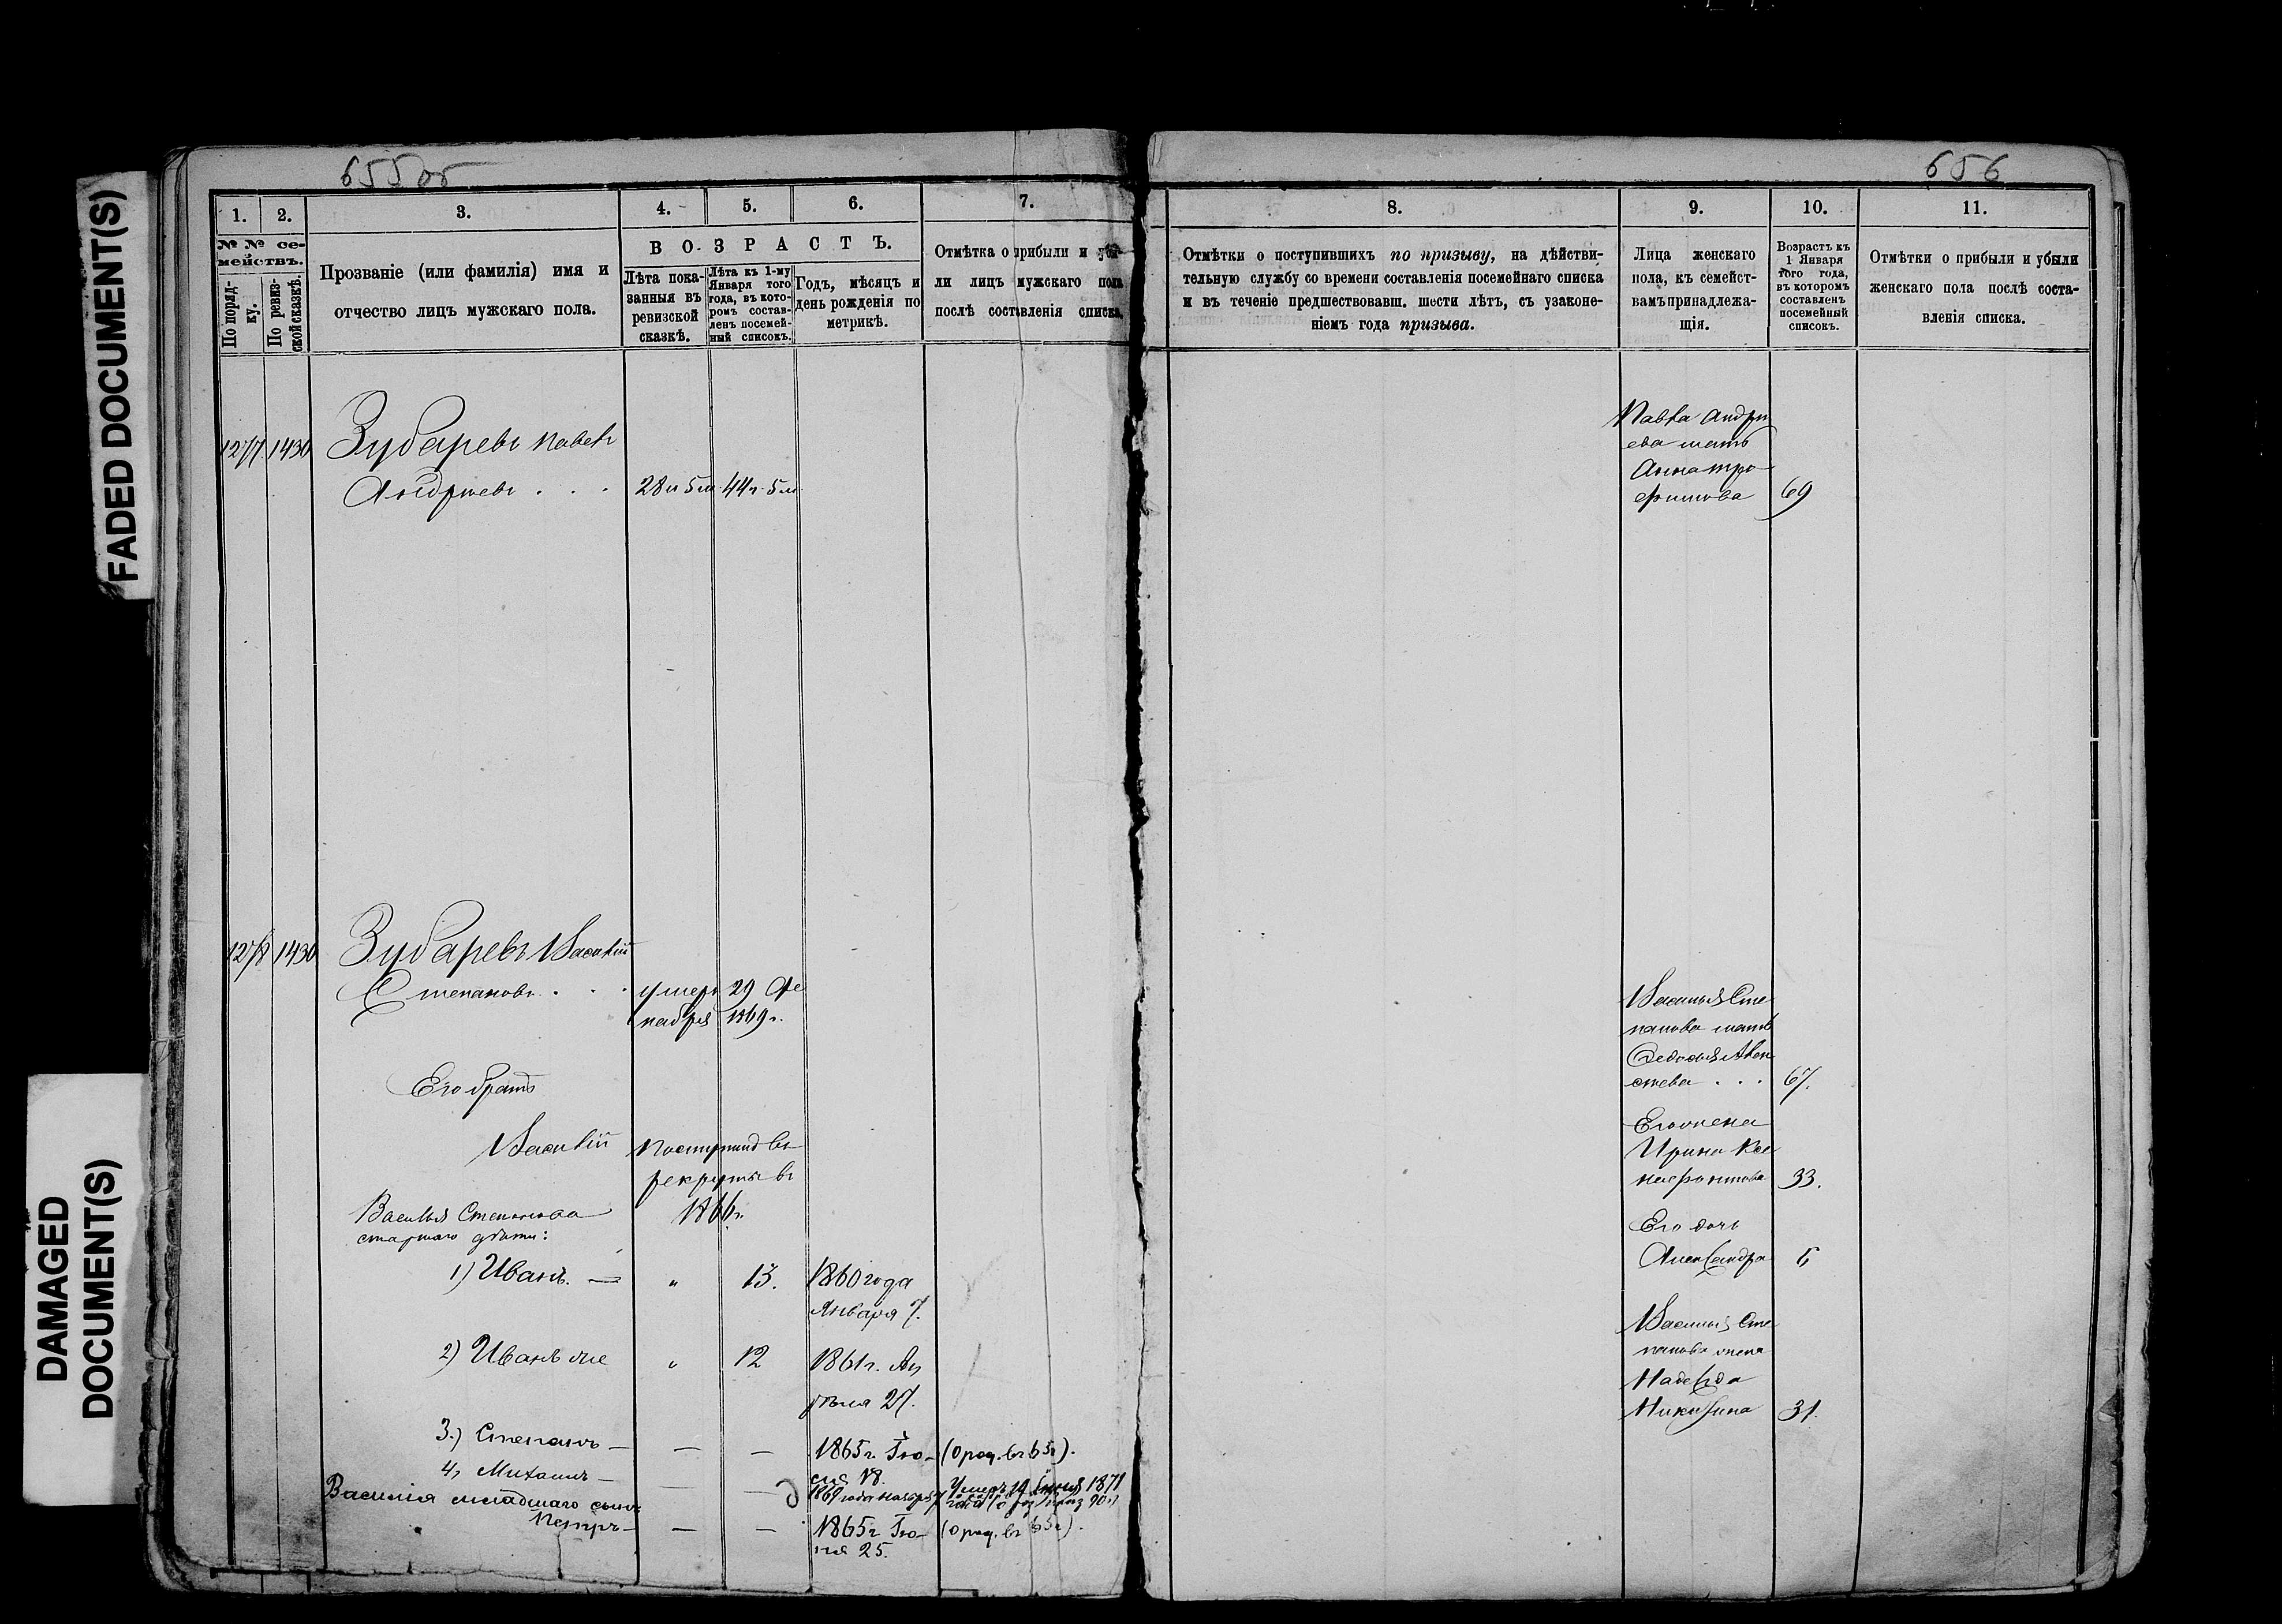 FADED DOCUMENT(S)
DAMAGED
DOCUMENT(S)
655 об
1.
2.
3.
4.
5.
6.
7.
№ № се-
мействъ.
По поряд-
ку.
По ревиз-
ской сказкѣ.
Прозваніе (или фамилія) имя и
отчество лицъ мужскаго пола.
ВОЗРАСТЪ.
Лѣта пока-
занныя въ
ревизской
сказкѣ.
Лѣта къ 1-му
Января того
года, въ кото-
ромъ состав-
ленъ посемей-
ный списокъ.
Годъ, мѣсяцъ и
день рожденія по
метрикѣ.
Отмѣтка о прибыли и убы-
ли лицъ мужскаго пола
послѣ составленія списка.
1277 1430 Зубаревъ Павелъ
Андреевъ . . . 28 и 5 м. 44 г. 5 м.
1278 1430 Зубаревъ Василій
Степановъ . . . умеръ 29 Де
кабря 1869 г.
Его братъ
Василій Поступилъ въ
рекруты въ
1866 г.
Василья Степанова
старшаго дѣти:
1) Иванъ. — „ 13. 1860 года
Января 7.
2) Иванъ же „ 12 1861 г. Ап
рѣля 27.
3.) Степанъ — — — 1865 г. Ію- (о род. въ 65 г.).
ля 18.
4, Михаилъ — — — 1869 года ноября 7 Умеръ 19 Іюня 1871
года
Василія младшаго сынъ
Петръ — — — 1865 г. Ію- (о род. въ 65 г.).
ня 25.
656
8.
9.
10.
11.
Отмѣтки о поступившихъ по призыву, на дѣйстви-
тельную службу со времени составленія посемейнаго списка
и въ теченіе предшествовавш. шести лѣтъ, съ узаконе-
ніемъ года призыва.
Лица женскаго
пола, къ семейст-
вамъ принадлежа-
щія.
Возрастъ къ
1 Января
того года,
въ которомъ
составленъ
посемейный
списокъ.
Отмѣтки о прибыли и убыли
женскаго пола послѣ соста-
вленія списка.
Павла Андре
ева мать
Анна Тро
фимова 69
Василья Сте
панова мать
Федосья Алек
сѣева . . . 67.
Его жена
Ирина Ксе
нофонтова 33.
Его дочь
Александра 5
Василья Сте
панова жена
Надежда
Никитина 31.